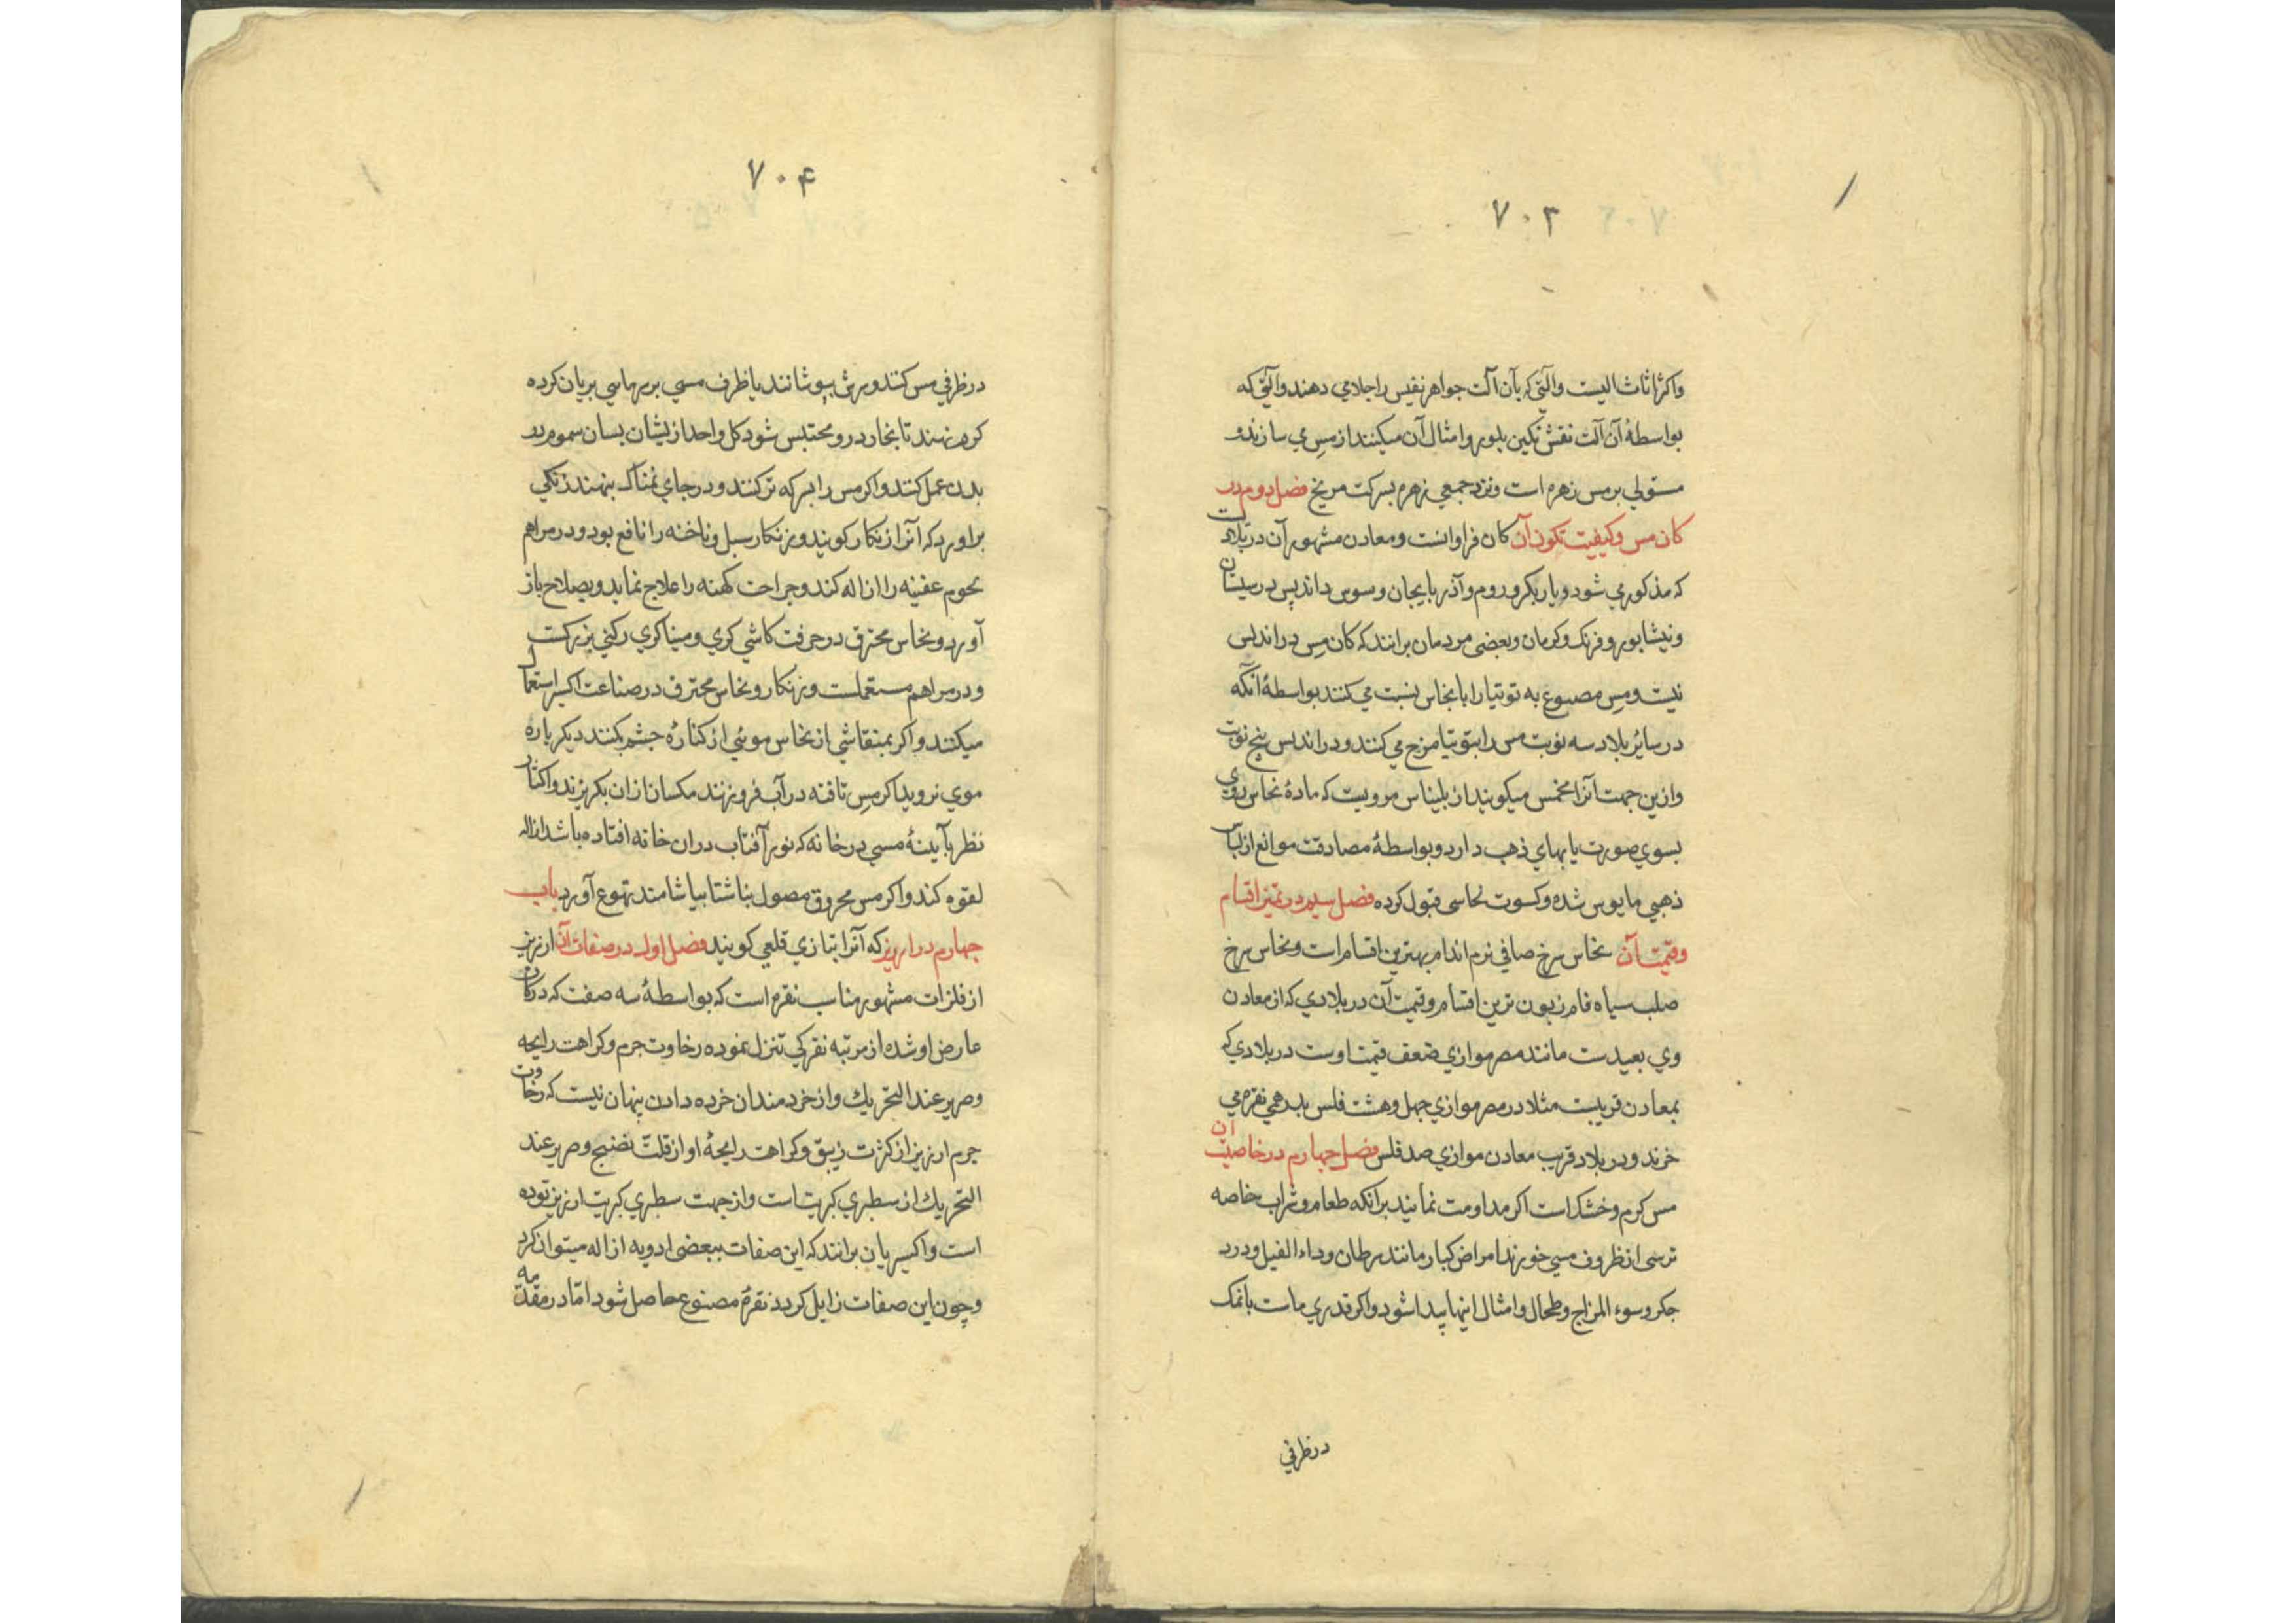 ۷۰۳
واکثر اثاث البیت والتی که بآن آلت جواهر نفیس را جلا می دهند والتی که
بواسطهٔ آن آلت نقش نکین بلور وامثال آن میکنند از مس می سازند و
مستولی بر مس زهره است ونزد جمعی زهره بشرکت مریخ فصل دوم در
کان مس وکیفیت تکون آن کان فراوانست ومعادن مشهور آن در بلاد
که مذکور می شود دیاربکر وروم وآذربایجان وسوس واندلس در سیستان
ونیشابور وفرنک وکرمان وبعضی مردمان برانند که کان مس در اندلس
نیست ومس مصبوع به توتیا را با نحاس نسبت می کنند بواسطهٔ آنکه
در سایر بلاد سه نوبت مس را بتوتیا مزج می کنند ودر اندلس پنج نوبت
وازین جهت آنرا مخمس میکویند از بلیناس مرویست که مادهٔ نحاس روی
بسوی صورت یا بهای ذهب دارد وبواسطهٔ مصادفت موانع از لباس
ذهبی مایوس شده وکسوت نحاسی قبول کرده فصل سیم در تمیز اقسام
وقیمت آن نحاس سرخ صافی نرم اندام بهترین اقسام است ونحاس سرخ
صلب سیاه فام زبون ترین اقسام وقیمت آن در بلادی که از معادن
وی بعیدست مانند مصر موازی ضعف قیمت اوست در بلادی که
بمعادن قریبست مثلا در مصر موازی چهل وهشت فلس بدرهمی نقره می
خرند ودر بلاد قریب معادن موازی صد فلس فصل چهارم در خاصیت آن
مس کرم وخشک است اکر مداومت نمایند برانکه طعام وشراب خاصه
ترشی از ظروف مسی خورند امراض کبار مانند سرطان وداء الفیل ودرد
جکر وسوء المزاج وطحال وامثال اینها پیدا شود واکر قدری ماست بانمک
درظرفی
۷۰۴
درظرفی مس کنند وسرش بپوشانند یا ظرف مسی بر بریان کرده
کرم نهند تا بخار درو محتبس شود کل واحد ازیشان بسان سموم در
بدن عمل کنند واکر مس را بسرکه تر کنند ودر جای نمناک بنهند زنکی
براورد که آنرا زنکار کویند وزنکار سبل وناخنه را نافع بود ودر مراهم
لحوم عفینه را ازاله کند وجراحت کهنه را علاج نماید وبصلاح باز
آورد ونحاس محترق در حرفت کاشی کری ومیناکری رکنی بزرکست
ودر مراهم مستعملست وزنکار ونحاس محترق در صناعت اکسیر استعمال
میکنند واکر بمنقاشی از نحاس موئی از کنارهٔ چشم بکنند دیکر باره
موی نروید اکر مس تافته در آب فرو زنند مکسان ازان بکریزند واکثار
نظر بآیینهٔ مسی در خانه که نور آفتاب دران خانه افتاده باشد ازاله
لقوه کند واکر مس محروق مصول بناشتا بیاشامند تهوع آورد باب
چهارم در ارزیز که آنرا بتازی قلعی کویند فصل اول در صفات آن ارزیز
از فلزات مشهور مناسب نقره است که بواسطهٔ سه صفت که در کان
عارض او شده از مرتبه نقرکی تنزل نموده رخاوت جرم وکراهت رایحه
وصریر عند التحریک واز خردمندان خرده دان پنهان نیست که رخاوت
جرم ارزیز از کثرت زیبق وکراهت رایحهٔ او از قلت نضج وصریر عند
التحریک از سطبری کبریتست واز جهت سطبری کبریت ارزیز توده
است واکسیریان برانند که این صفات ببعضی ادویه ازاله میتوان کرد
وچون این صفات زایل کردد نقرهٔ مصنوع حاصل شود اما در مقدمه